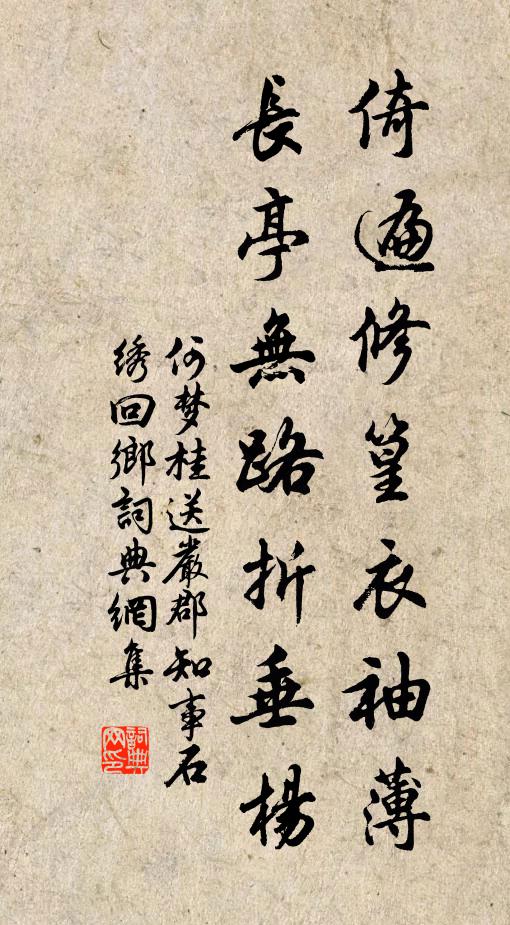 倚遍修篁衣袖薄
長亭無路折垂楊
何梦桂送嚴郡知事石
绣回鄉詞典網集
詞典網印